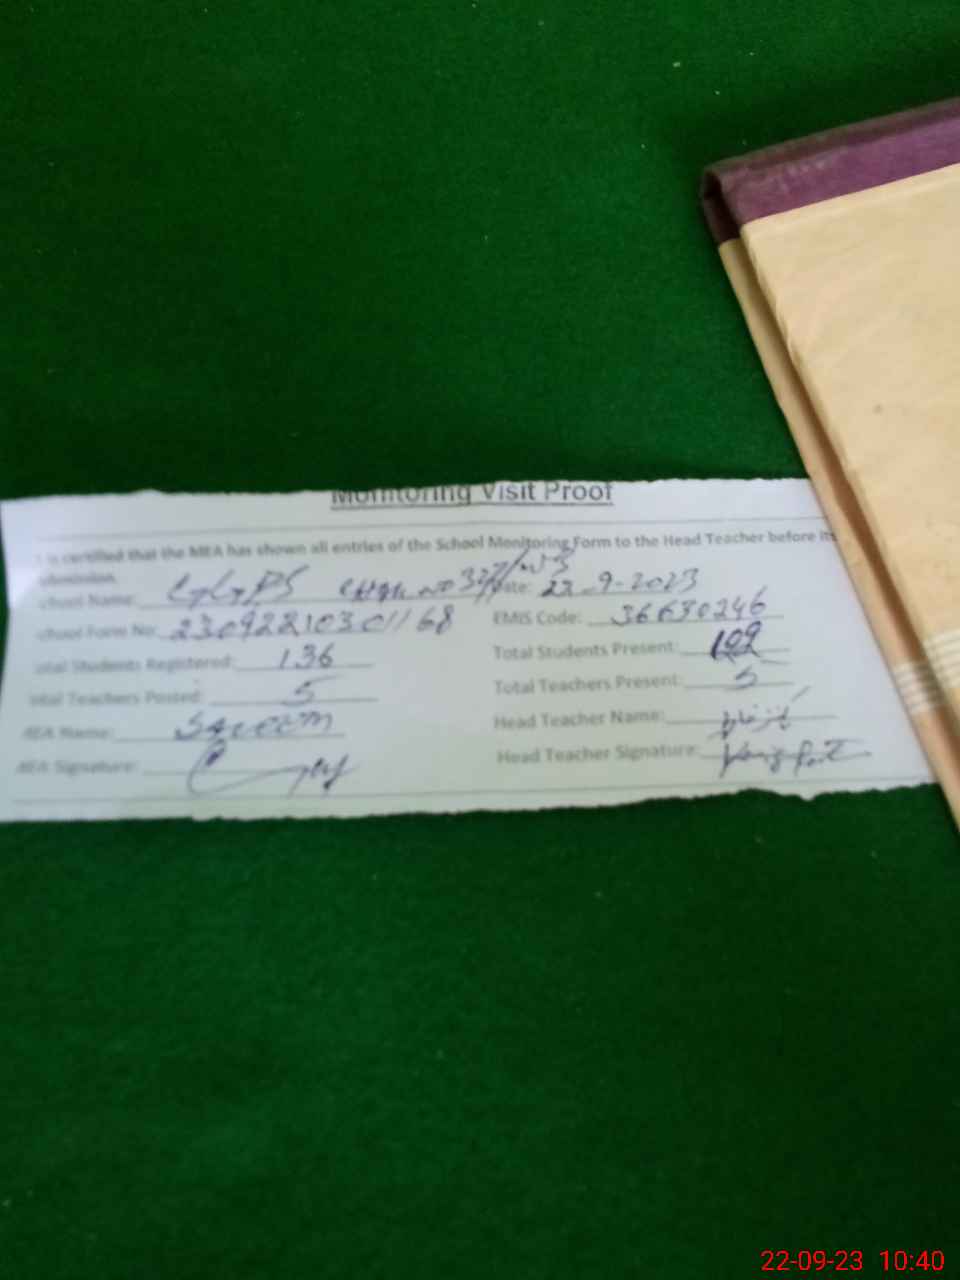 Monitoring Visit Proof
t is certified that the MEA has shown all entries of the School Monitoring Form to the Head Teacher before its
ubmission.
chool Name: GGPS CHAK NO 327/ Date: 22-9-2023
chool Form No: 23092210301168 EMIS Code: 36630246
otal Students Registered: 136 Total Students Present: 109
otal Teachers Posted: 5 Total Teachers Present: 5
MEA Name: Saleem Head Teacher Name:
MEA Signature: Head Teacher Signature:
22-09-23 10:40